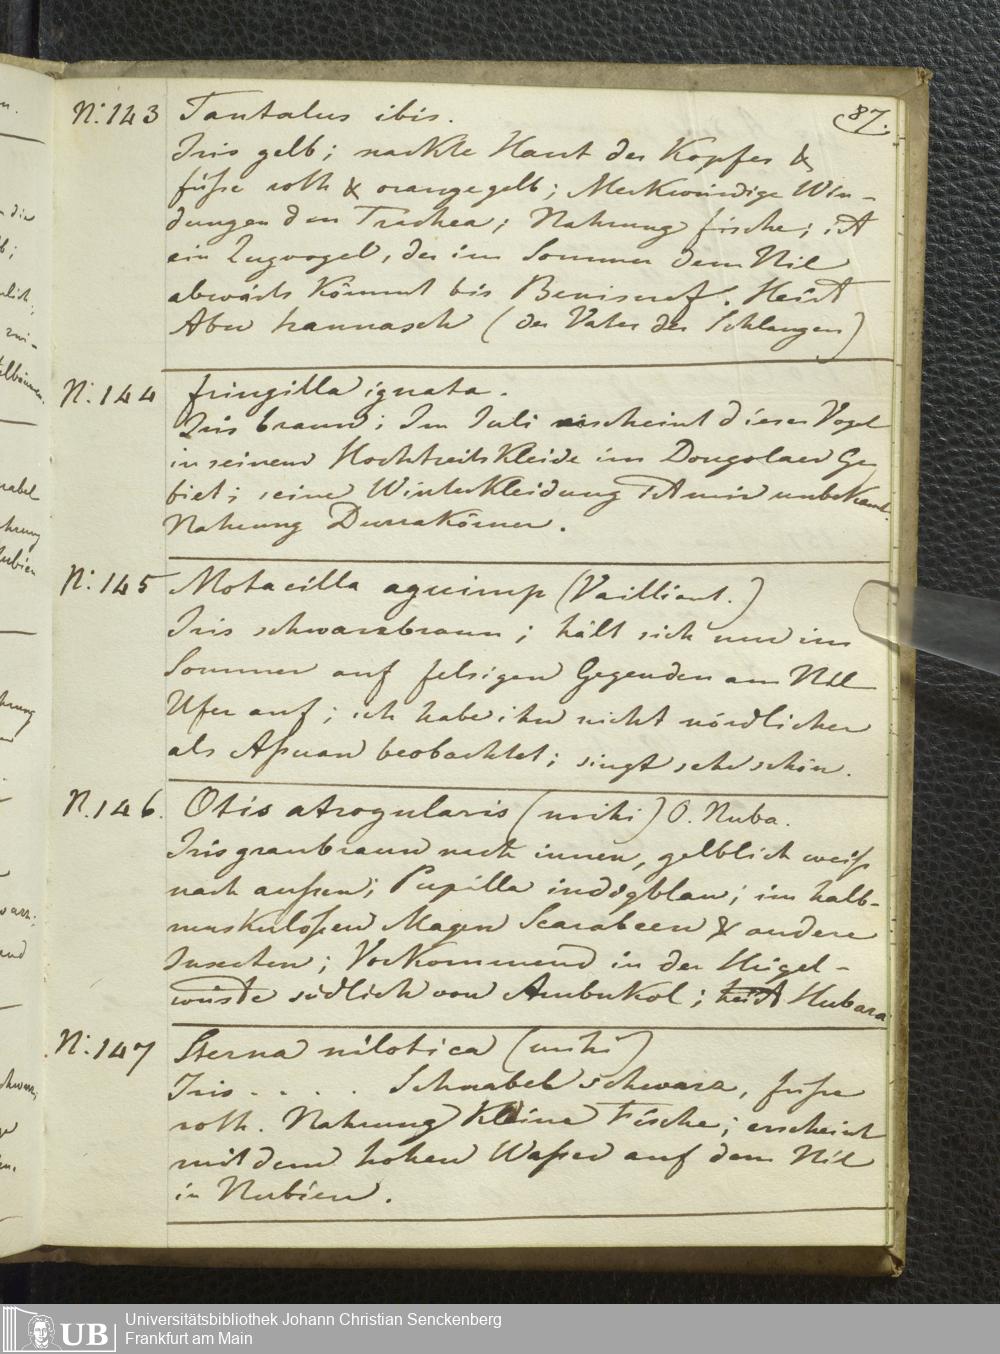 87.
N: 143 Tantalus ibis.
Iris gelb; nackte Haut des Kopfes &
füsse roth & orangegelb; Merkwürdige Win-
dungen den Trachea; Nahrung fische; ist
ein Zugvogel, der im Sommer dem Nil
abwärts kömmt bis Benisuef. Heist
Abu hannasch (der Vater der Schlangen)
N: 144 fringilla ignata.
Iris braun; Im Juli erscheint dieser Vogel
in seinem Hochtzeitskleide im Dongolaer Ge
biet; seine Winterkleidung ist mir unbekant.
Nahrung Durrakörner.
N: 145 Motacilla aguimp (Vailliant.)
Iris schwarzbraun; hält sich nur im
Sommer auf felsigen Gegenden am Nil
Ufer auf; ich habe ihn nicht nördlicher
als Assuan beobachtet; singt sehr schön.
N. 146. Otis atrogularis (mihi) O. Nuba.
Iris graubraun nach innen, gelblich weiss
nach aussen; Pupilla indigblau; im halb-
muskulosen Magen Scarabeen & andere
Insecten; Vorkommend in der Hügel-
wüste südlich von Ambukol; heist Hubara
N: 147 Sterna nilotica (mihi)
Iris . . . . Schnabel schwarz, füsse
roth. Nahrung kleine Fische; erscheint
mit dem hohen Wasser auf dem Nil
in Nubien.
UB
Universitätsbibliothek Johann Christian Senckenberg
Frankfurt am Main